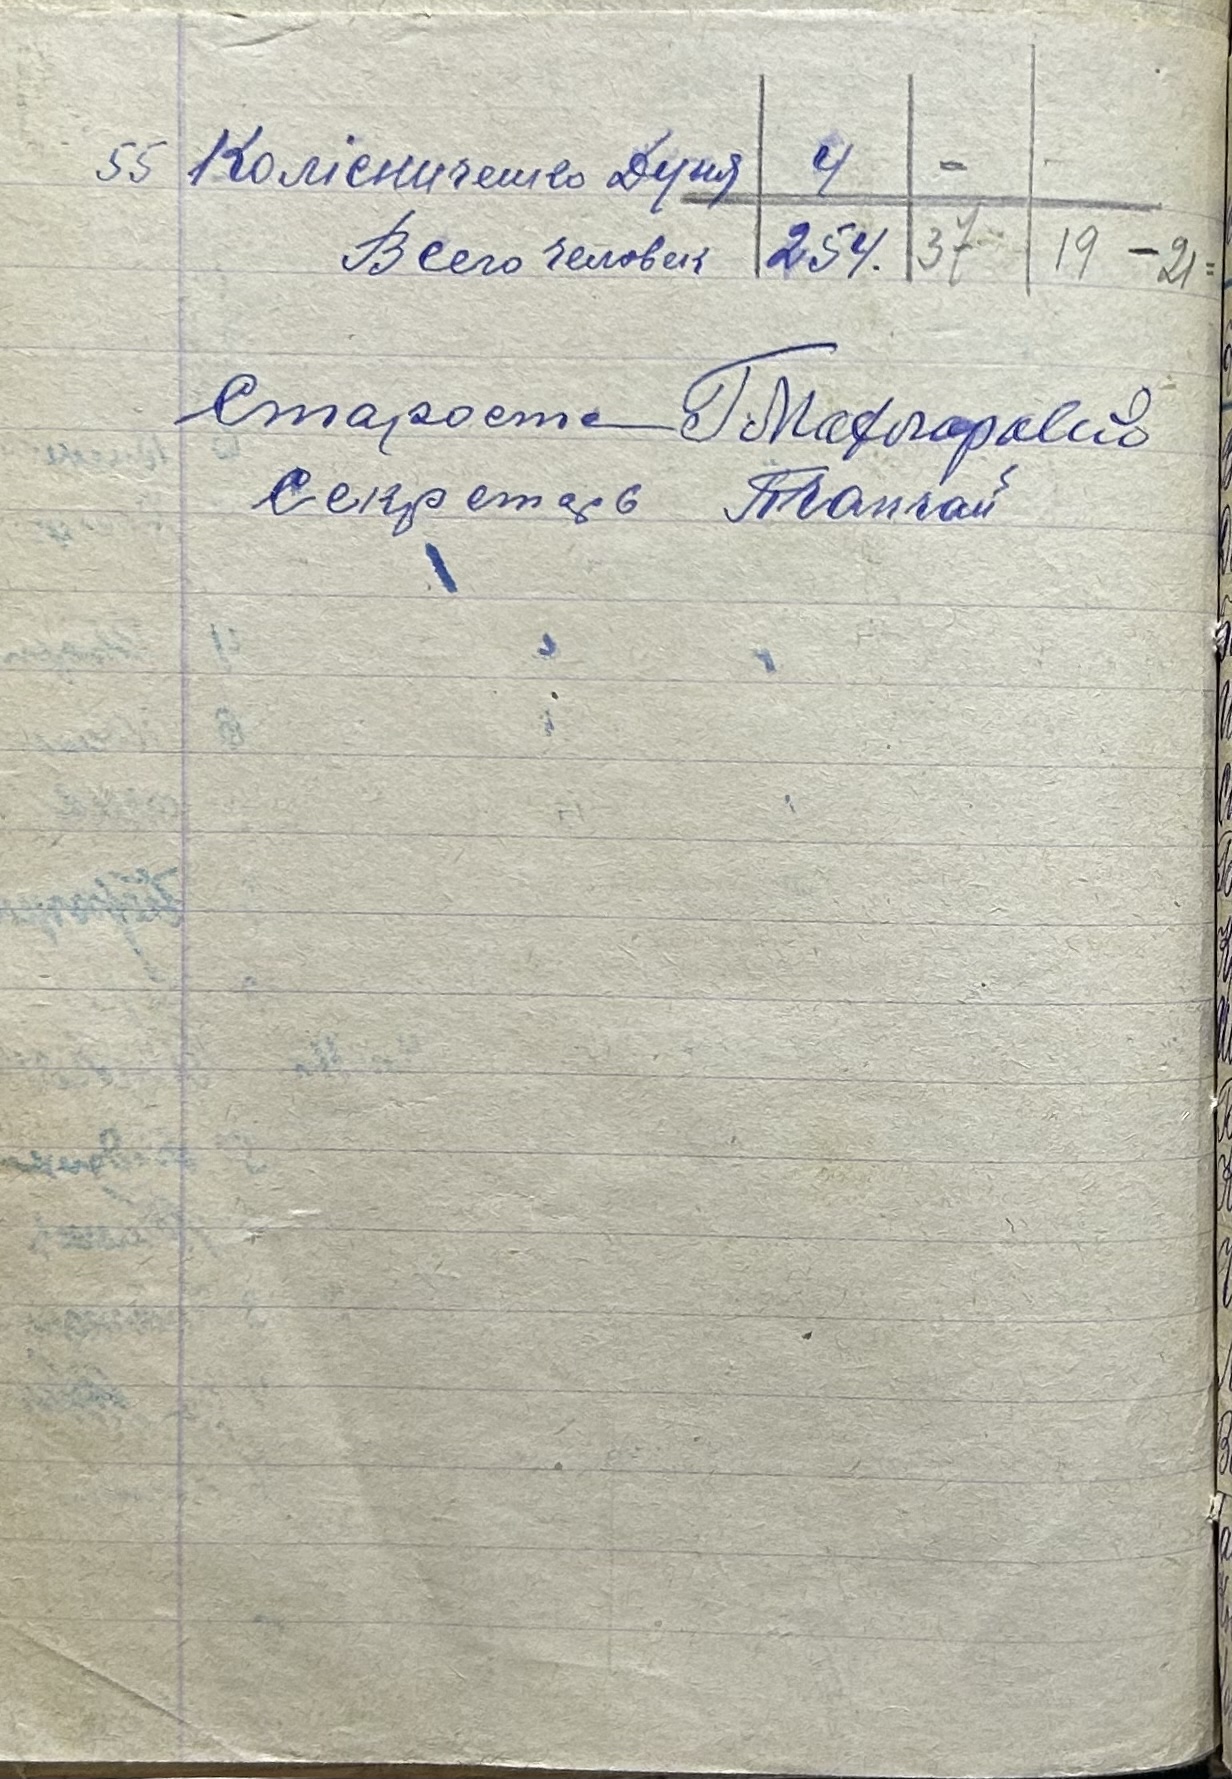 55 Колісниченко Дуня 4 -
Всего человек 254. 37 19 - 21 =
Староста
Секретарь